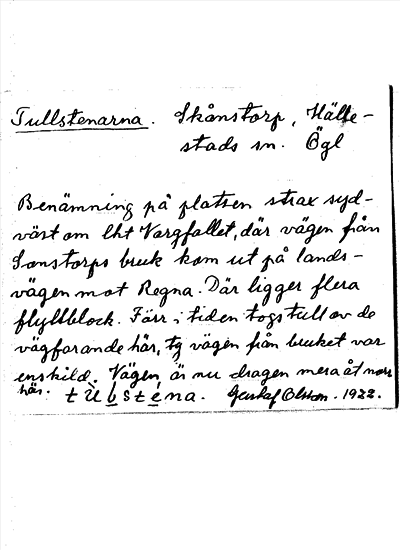 Tullstenarna. Skånstorp, Hälle-
stads sn. Ögl
Benämning på platsen strax syd-
väst om lht Vargfallet, där vägen från
Sonstorps bruk kom ut på lands-
vägen mot Regna. Där ligger flera
flyttblock. Förr i tiden togs tull av de
vägfarande här, ty vägen från bruket var
enskild. Vägen är nu dragen mera åt norr
här. Gustaf Olsson. 1922.